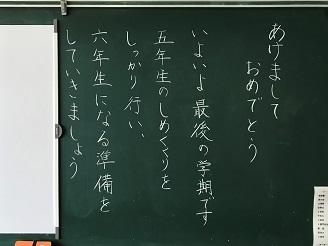 あけまして
おめでとう
いよいよ最後の学期です
五年生のしめくくりを
しっかり行い、
六年生になる準備を
していきましょう